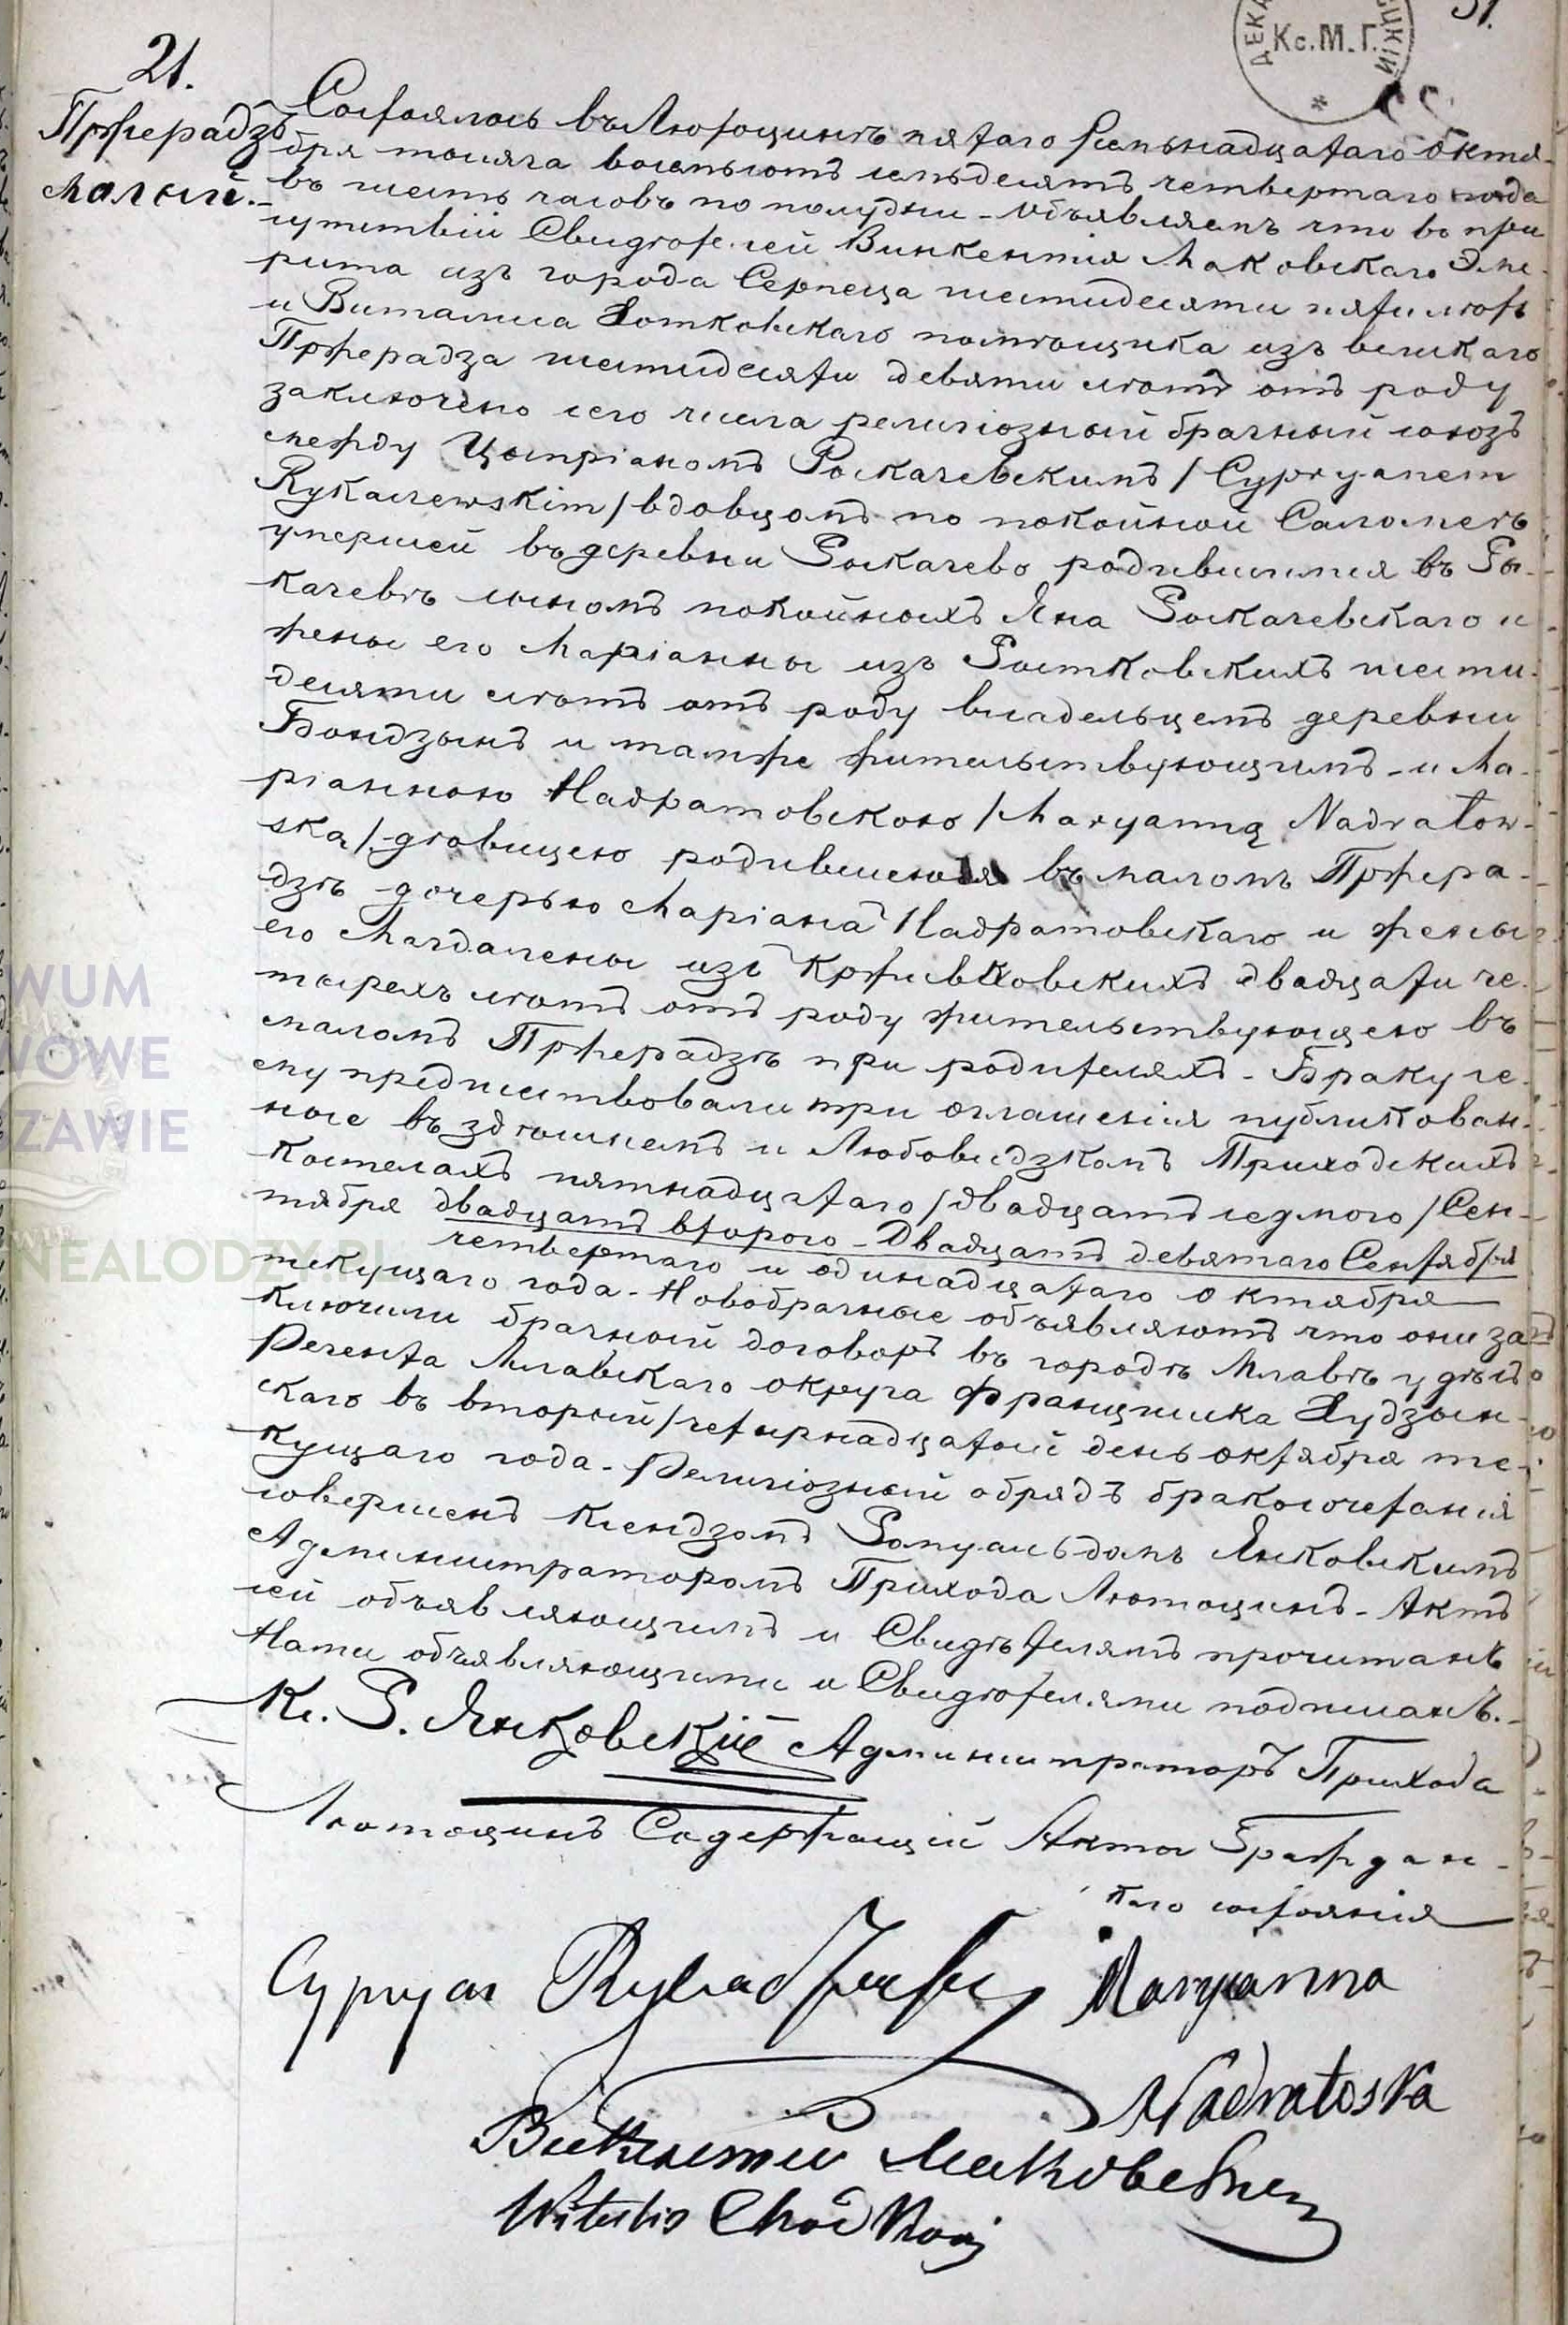 31.
ДЕКА ЦКІЙ
Кс. М. Г.
21.
Пржерадзъ
Малый.
Состоялось въ Лютоцинѣ пятаго /семьнадцатаго Октя-
бря тысяча восемьсотъ семьдесятъ четвертаго года
въ шесть часовъ по полудни - Объявляемъ что въ при
сутствіи Свидѣтелей Викентія Маковскаго Эме-
рита изъ города Серпеца шестидесяти пяти лѣтъ
и Виталиса Хотковскаго помѣщика изъ великаго
Пржерадза шестидесяти девяти лѣтъ отъ роду
заключено сего числа религіозный брачный союзъ
между Цыпріаномъ Рыкачевскимъ /Cypryanem
Rykaczewskim/ вдовцомъ по покойной Саломеѣ
умершей въ деревни Рыкачево родившимся въ Ры-
качевѣ сыномъ покойныхъ Яна Рыкачевскаго и
жены его Маріанны изъ Ростковскихъ шести-
десяти лѣтъ отъ роду владельцемъ деревни
Бондзынъ и тамже жительствующимъ - и Ма-
ріанною Надратовскою /Maryanną Nadratow-
ską/ дѣвицею родившеюся въ маломъ Пржера-
дзѣ дочерью Маріана Надратовскаго и жены
его Магдалены изъ Крживковскихъ двадцати че-
тырехъ лѣтъ отъ роду жительствующею въ
маломъ Пржерадзѣ при родителяхъ - Браку се-
му предшествовали три оглашенія публикован-
ные въ здѣшнемъ и Любовидзкомъ Приходскихъ
Костелахъ пятнадцатаго /двадцать седмого/ Сен-
тября двадцать втораго - Двадцать девятаго Сентября
четвертаго и одинадцатаго октября
текущаго года - Новобрачные объявляютъ что они за
ключили брачный договоръ въ городѣ Млавѣ у дѣъ
Регента Млавскаго округа Францишка Худзын-
скаго въ вторый /четырнадцатый день октября те-
кущаго года - Религіозный обрядъ бракосочетанія
совершенъ Ксендзомъ Ромуальдомъ Янковскимъ
Администраторомъ Прихода Лютоцинъ - Актъ
сей объявляющимъ и Свидѣтелямъ прочитанъ
Нами объявляющими и Свидѣтелями подписанъ. -
Кс. Р. Янковскій Администраторъ Прихода
Лютоцинъ Содержащій Акты Граждан-
скаго состоянія
Cypryan Rykaczewski Maryanna
Nadratoska
Викентій Маковскій
Witalis Chodkoski
WUM
WOWE
ZAWIE
NEALODZY.PL